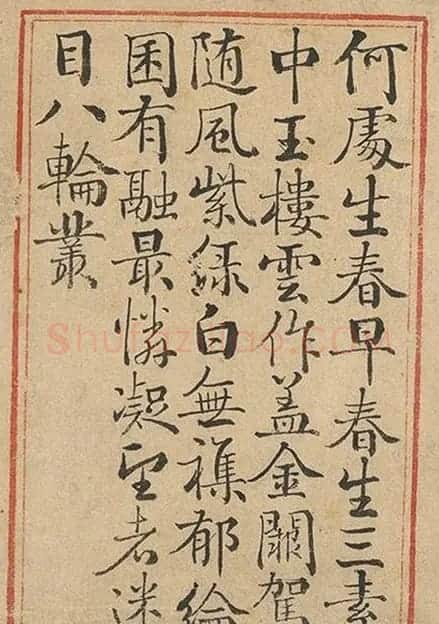 何處生春早春生三素
中玉樓雲作蓋金闕駕
随風紫緑白無襍郁綸
囷有融最憐凝望者迷
目八輪叢